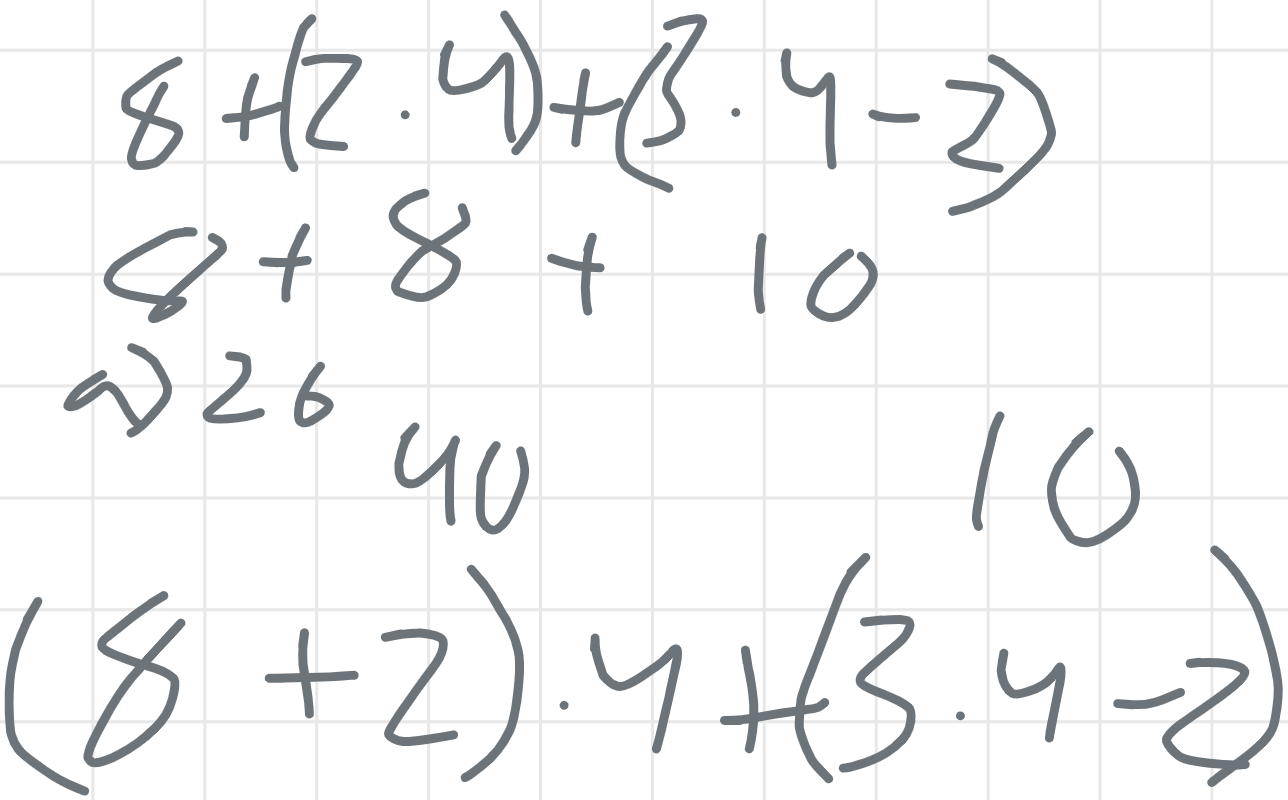 8 + (2 · 4) + (3 · 4 - 2)
8 + 8 + 10
26
40 10
(8 + 2) · 4 + (3 · 4 - 2)